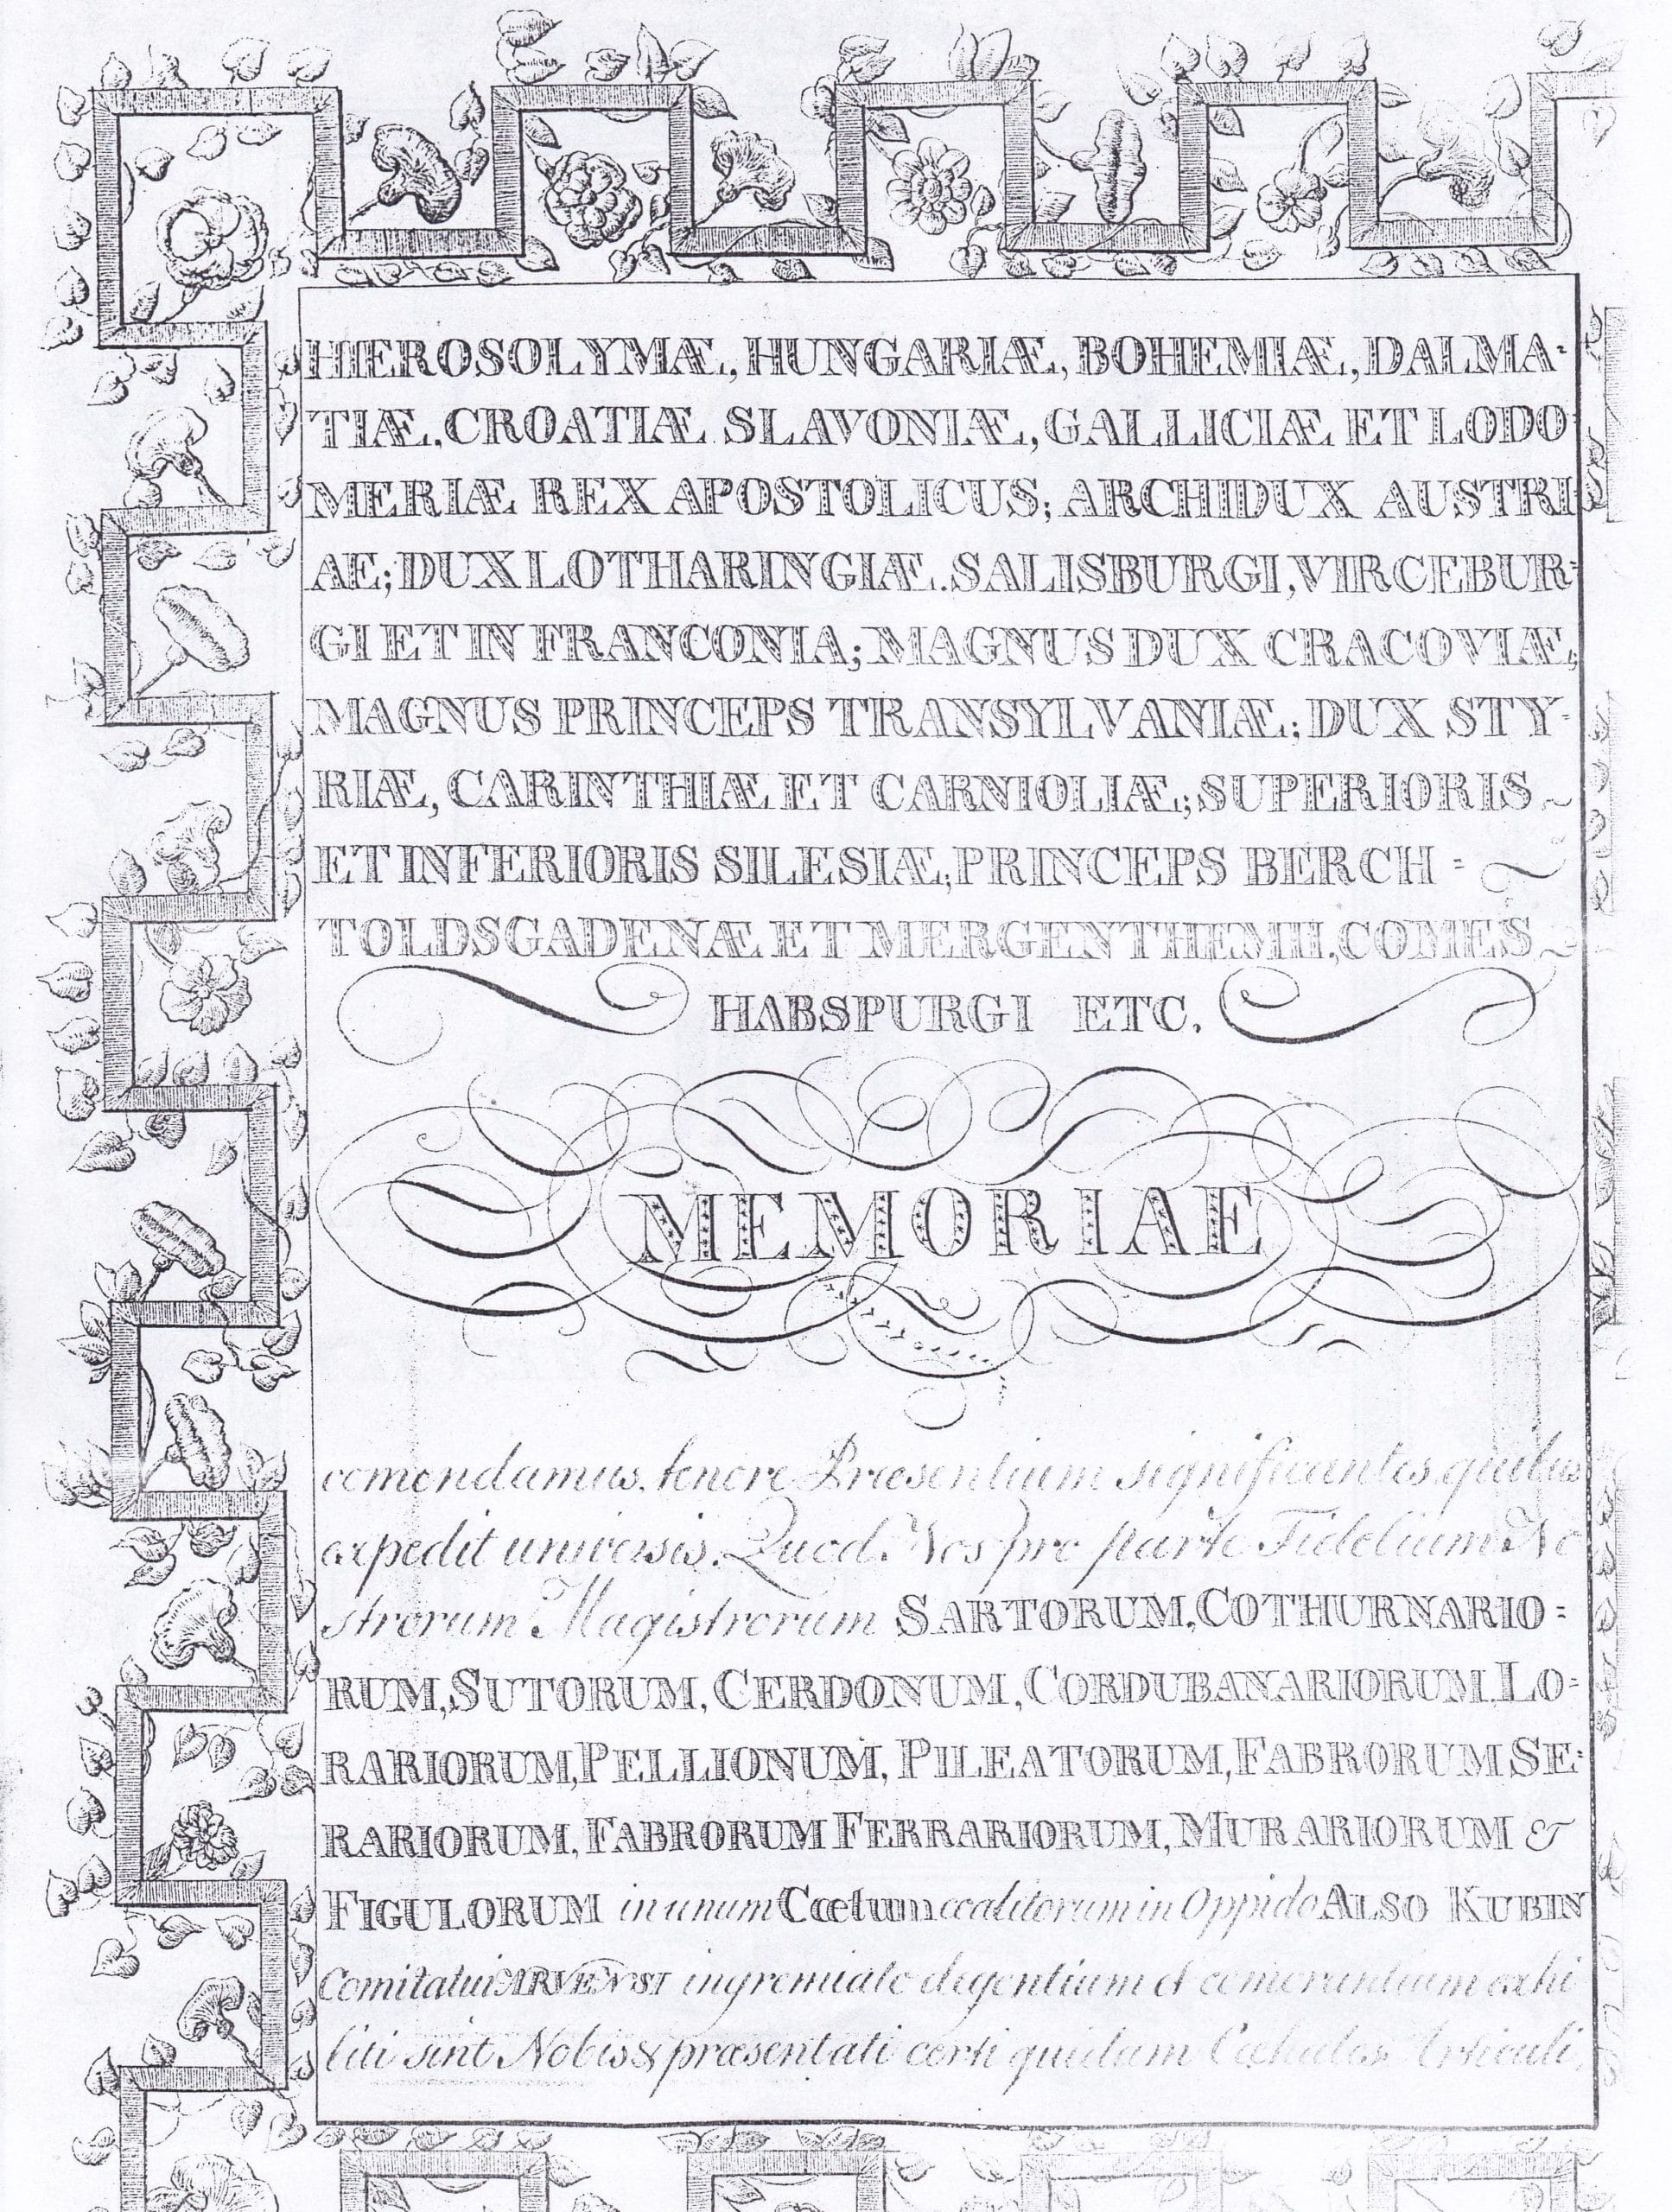 HIEROSOLYMÆ, HUNGARIÆ, BOHEMIÆ, DALMA-
TIÆ, CROATIÆ SLAVONIÆ, GALLICIÆ ET LODO
MERIÆ REX APOSTOLICUS; ARCHIDUX AUSTRI
AE; DUX LOTHARINGIÆ. SALISBURGI, VIRCEBUR-
GI ET IN FRANCONIA; MAGNUS DUX CRACOVIÆ;
MAGNUS PRINCEPS TRANSYLVANIÆ; DUX STY-
RIÆ, CARINTHIÆ ET CARNIOLIÆ; SUPERIORIS
ET INFERIORIS SILESIÆ; PRINCEPS BERCH=
TOLDSGADENÆ ET MERGENTHEMII, COMES
HABSPURGI ETC.
MEMORIAE
comendamus, tenore Præsentium significantes, quibus
expedit universis. Quod Nos pro parte Fidelium No
strorum Magistrorum SARTORUM, COTHURNARIO=
RUM, SUTORUM, CERDONUM, CORDUBANARIORUM, LO-
RARIORUM, PELLIONUM, PILEATORUM, FABRORUM SE-
RARIORUM, FABRORUM FERRARIORUM, MURARIORUM &
FIGULORUM in unum Cœtum coalitorum in Oppido ALSO KUBIN
Comitatui ARVENSI ingremiato degentium et comorantium exhi
biti sint Nobis & præsentati certi quidam Cœhales Articuli